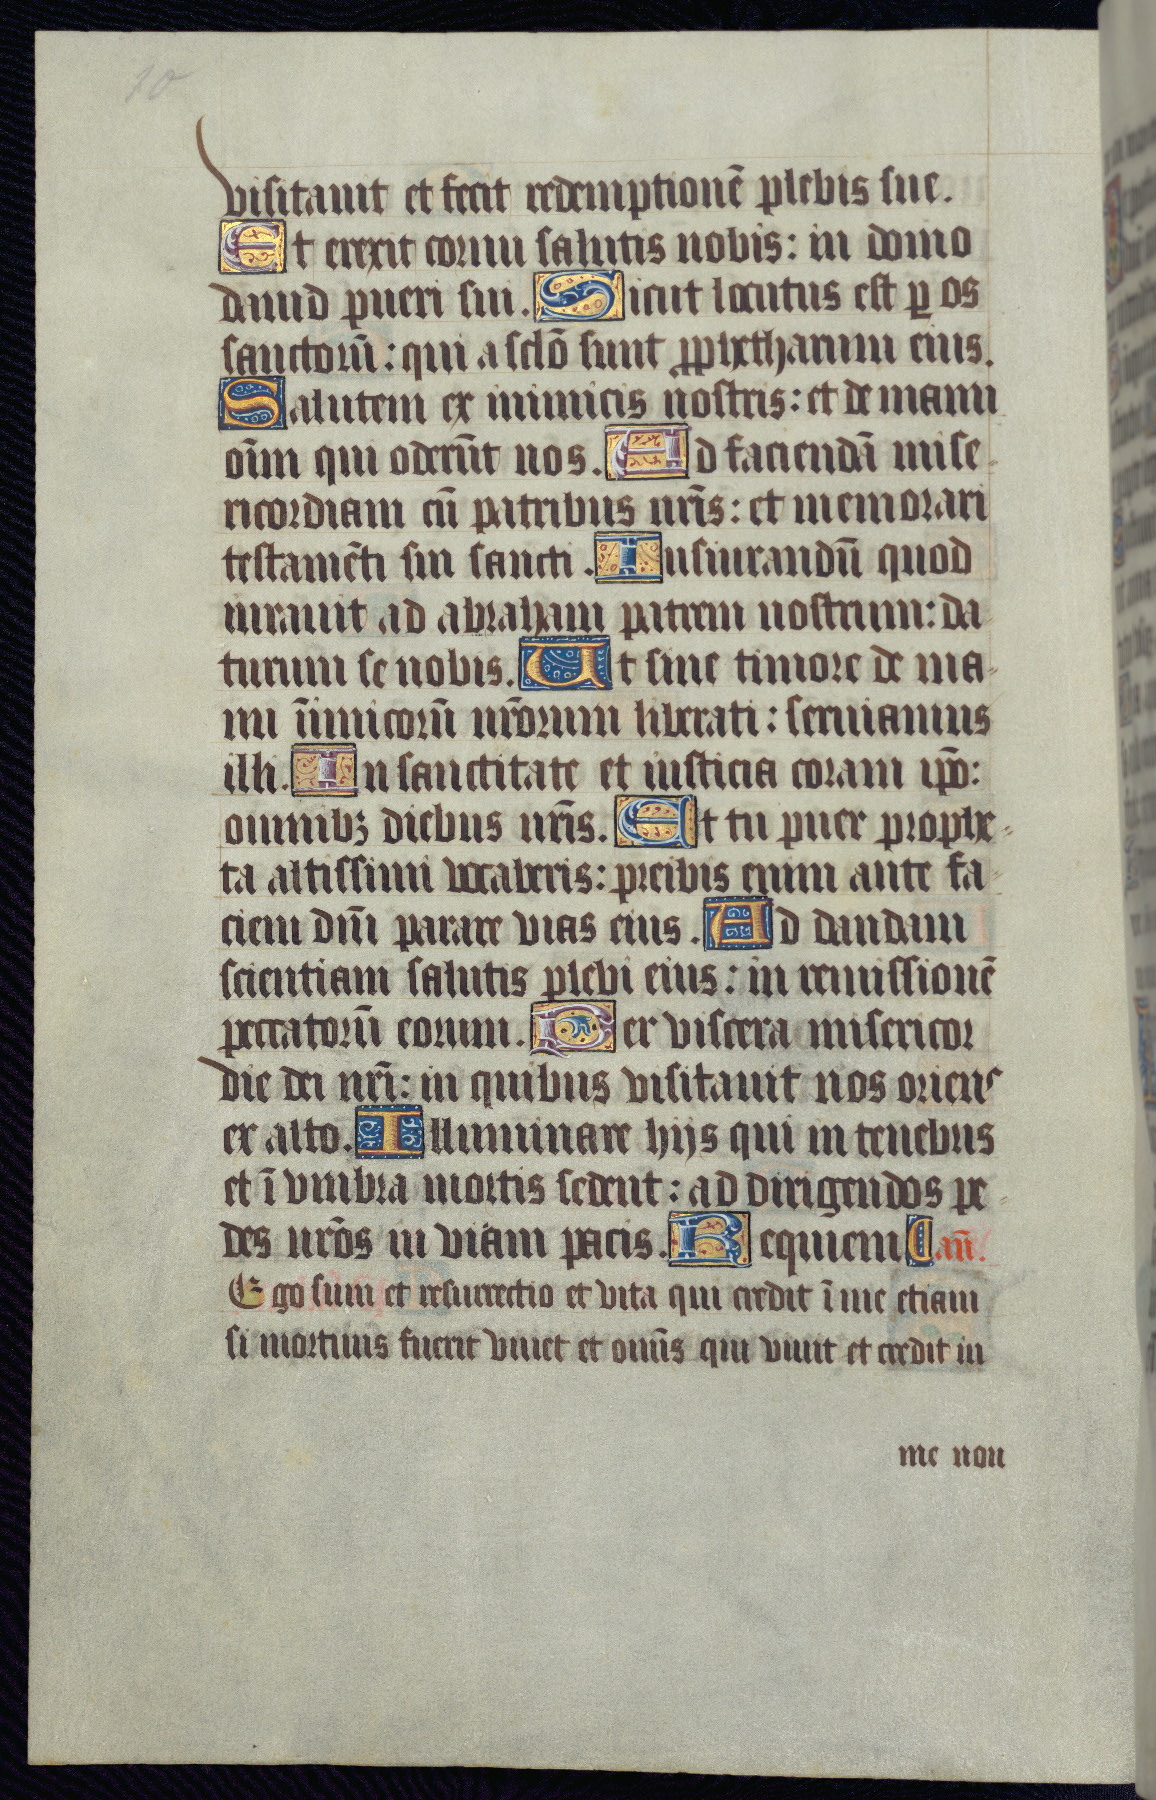 10
visitauit et fecit redemptionē plebis sue.
Et erexit cornu salutis nobis: in domo
dauid pueri sui. Sicut locutus est ꝑ os
sanctorū: qui a sclō sunt ꝓphetharum eius.
Salutem ex inimicis nostris: et de manu
oīm qui oderūt nos. Ad faciendā mise-
ricordiam cū patribus nr̄is: et memorari
testamēti sui sancti. Iusiurandū quod
iurauit ad abraham patrem nostrum: da
turum se nobis. Ut sine timore de ma-
nu īnimicorū nr̄orum liberati: seruiamus
illi. In sanctitate et iusticia coram ip̄o:
omnibꝫ diebus nr̄is. Et tu puer prophe-
ta altissimi vocaberis: preibis enim ante fa-
ciem dn̄i parare vias eius. Ad dandam
scientiam salutis plebi eius: in remissionē
peccatorū eorum. Per viscera misericor
die dei nr̄i: in quibus visitauit nos oriens
ex alto. Illuminare hijs qui in tenebris
et ī vmbra mortis sedent: ad dirigendos pe-
des nr̄os in viam pacis. Requiem an̄.
Ego sum et resurrectio et vita qui credit ī me etiam
si mortuus fuerit viuet et omīs qui viuit et credit in
me non